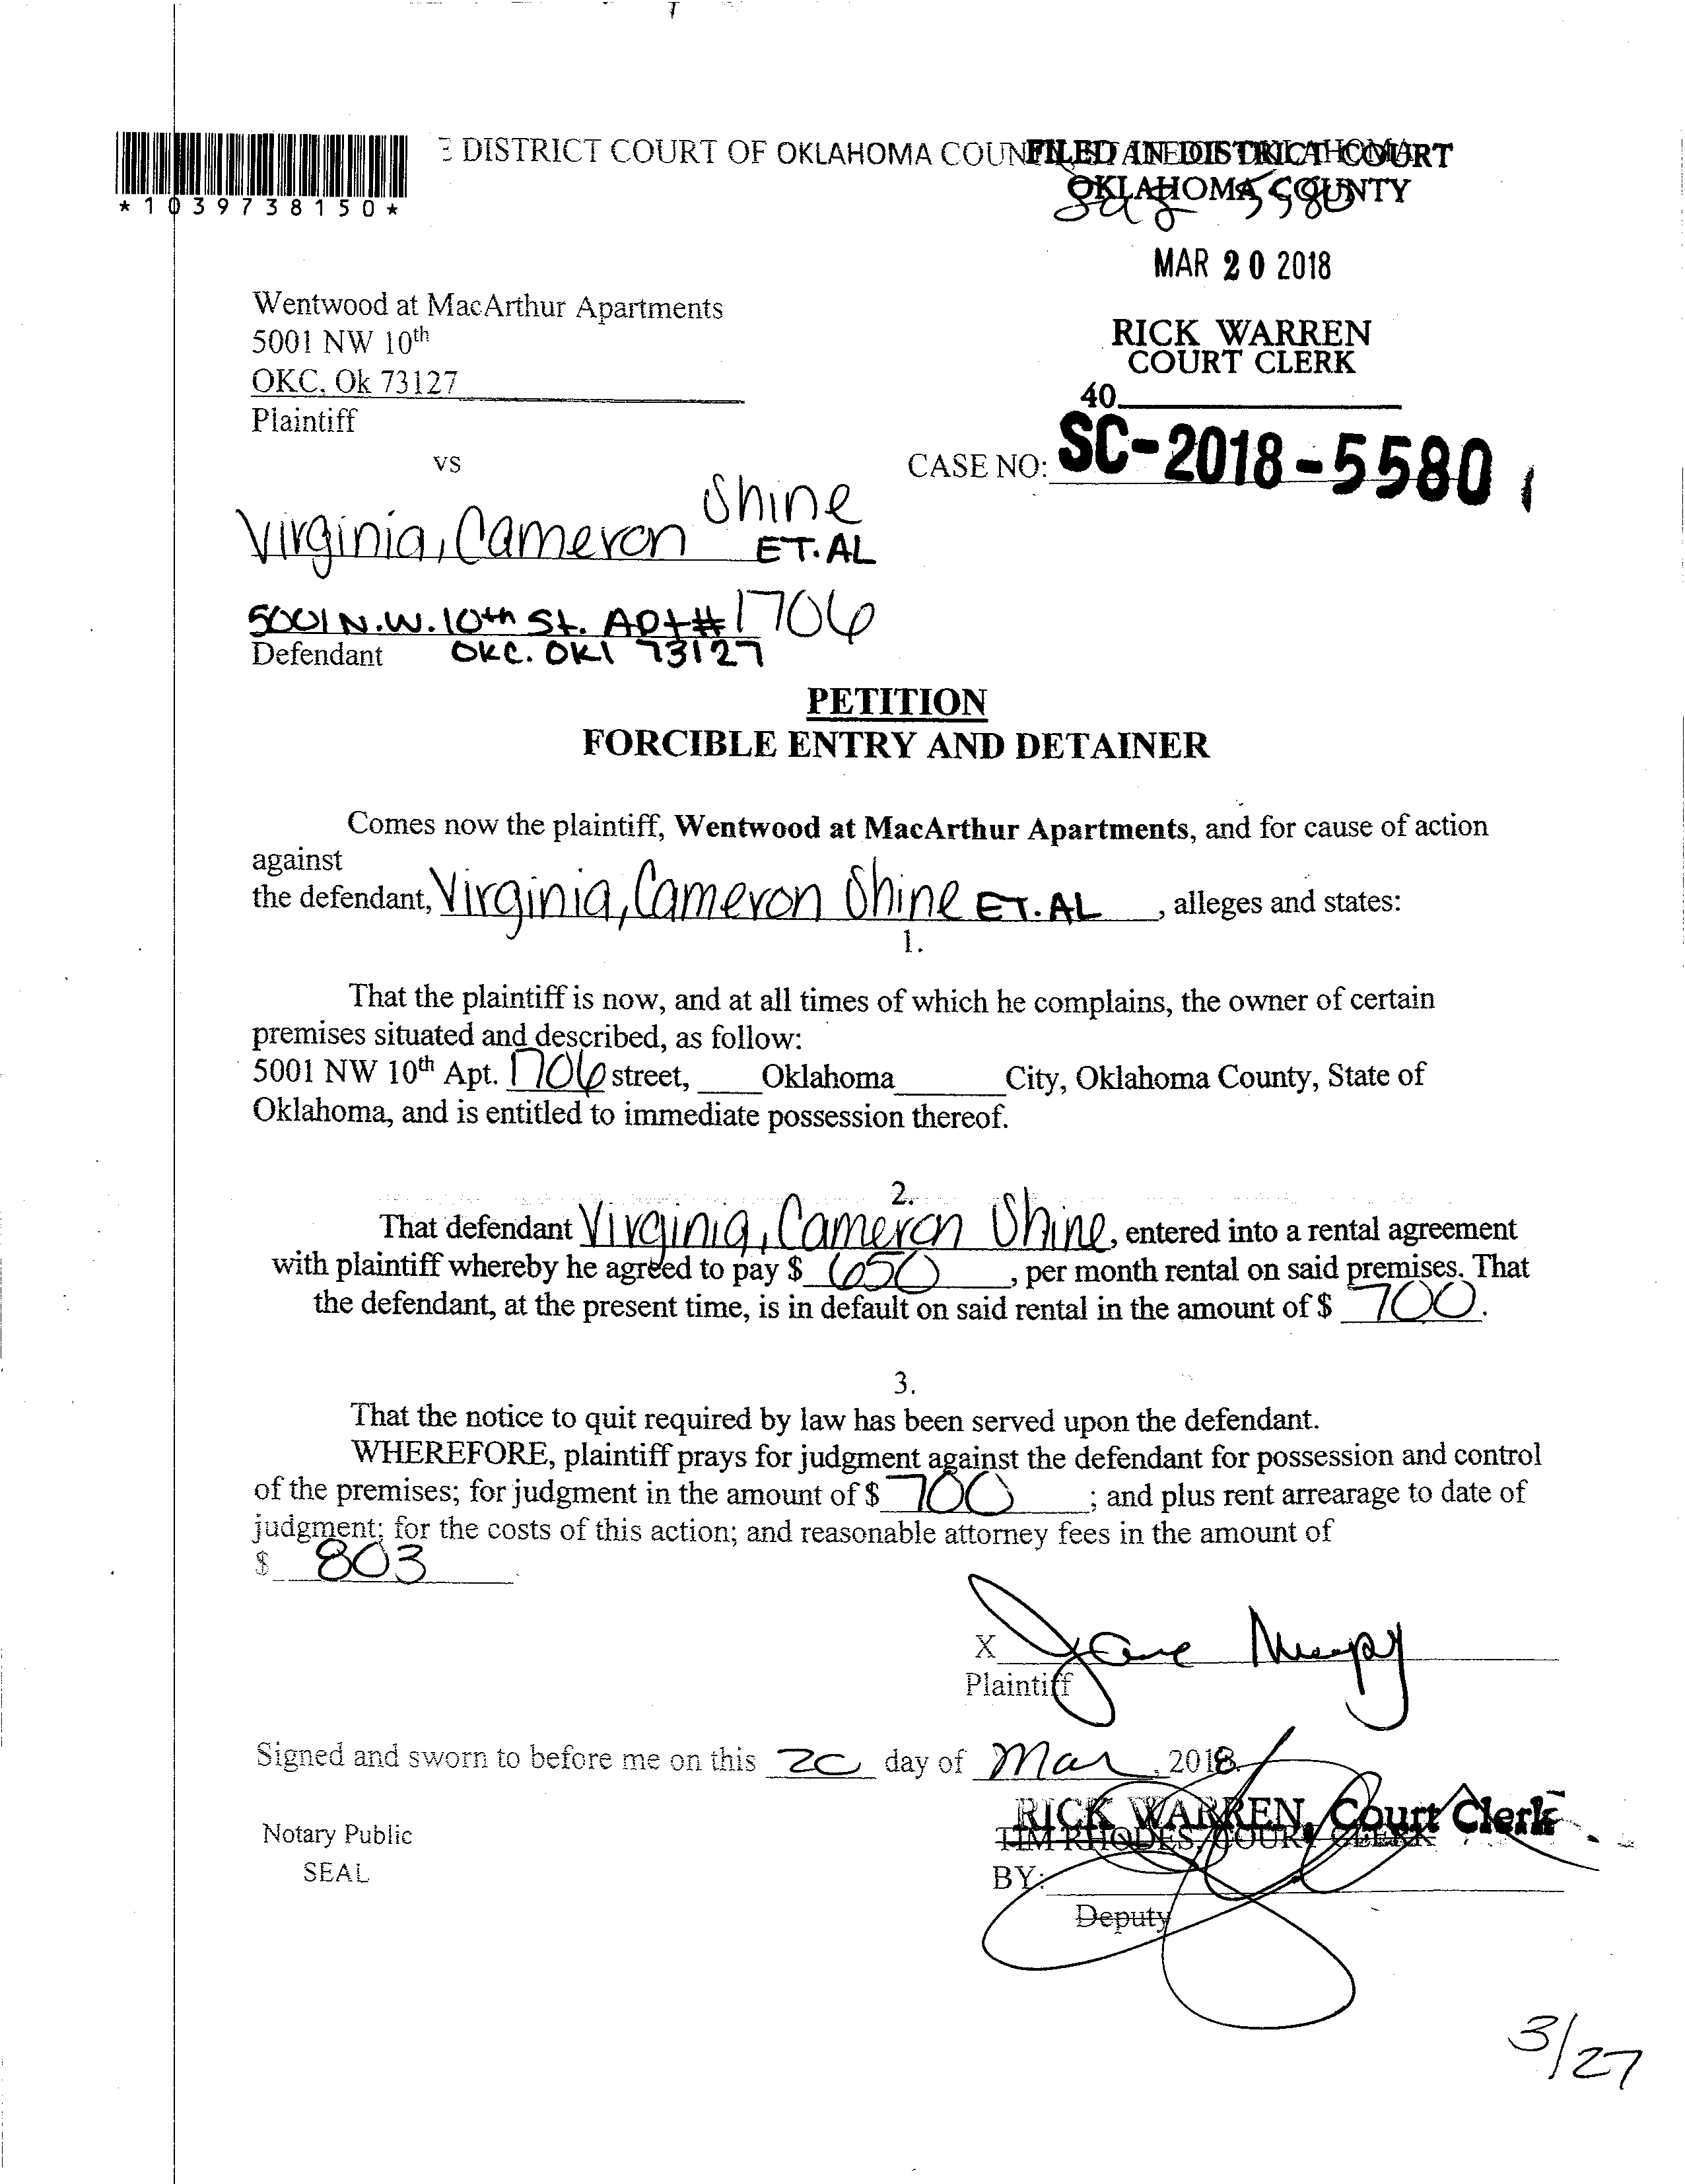 DISTRICT COURT OF OKLAHOMA COUN
FILED IN DISTRICT COURT
OKLAHOMA COUNTY
5580
*1039738150*
MAR 20 2018
Wentwood at MacArthur Apartments
5001 NW 10th
OKC, Ok 73127
Plaintiff
RICK WARREN
COURT CLERK
40
vs
CASE NO: SC-2018-5580
Shine
Virginia, Cameron ET.AL
5001 N.W. 10th St. Apt# 1706
Defendant OKC. OKl 73127
PETITION
FORCIBLE ENTRY AND DETAINER
Comes now the plaintiff, Wentwood at MacArthur Apartments, and for cause of action
against
the defendant, Virginia, Cameron Shine ET.AL , alleges and states:
1.
That the plaintiff is now, and at all times of which he complains, the owner of certain
premises situated and described, as follow:
5001 NW 10th Apt. 1706 street, Oklahoma City, Oklahoma County, State of
Oklahoma, and is entitled to immediate possession thereof.
2.
That defendant Virginia, Cameron Shine, entered into a rental agreement
with plaintiff whereby he agreed to pay $ 650 , per month rental on said premises. That
the defendant, at the present time, is in default on said rental in the amount of $ 700.
3.
That the notice to quit required by law has been served upon the defendant.
WHEREFORE, plaintiff prays for judgment against the defendant for possession and control
of the premises; for judgment in the amount of $ 700 ; and plus rent arrearage to date of
judgment; for the costs of this action; and reasonable attorney fees in the amount of
$ 803
X
Plaintiff
Signed and sworn to before me on this 20 day of Mar, 2018
RICK WARREN, Court Clerk
TIM RHODES, COURT CLERK
Notary Public
SEAL
BY:
Deputy
3/27